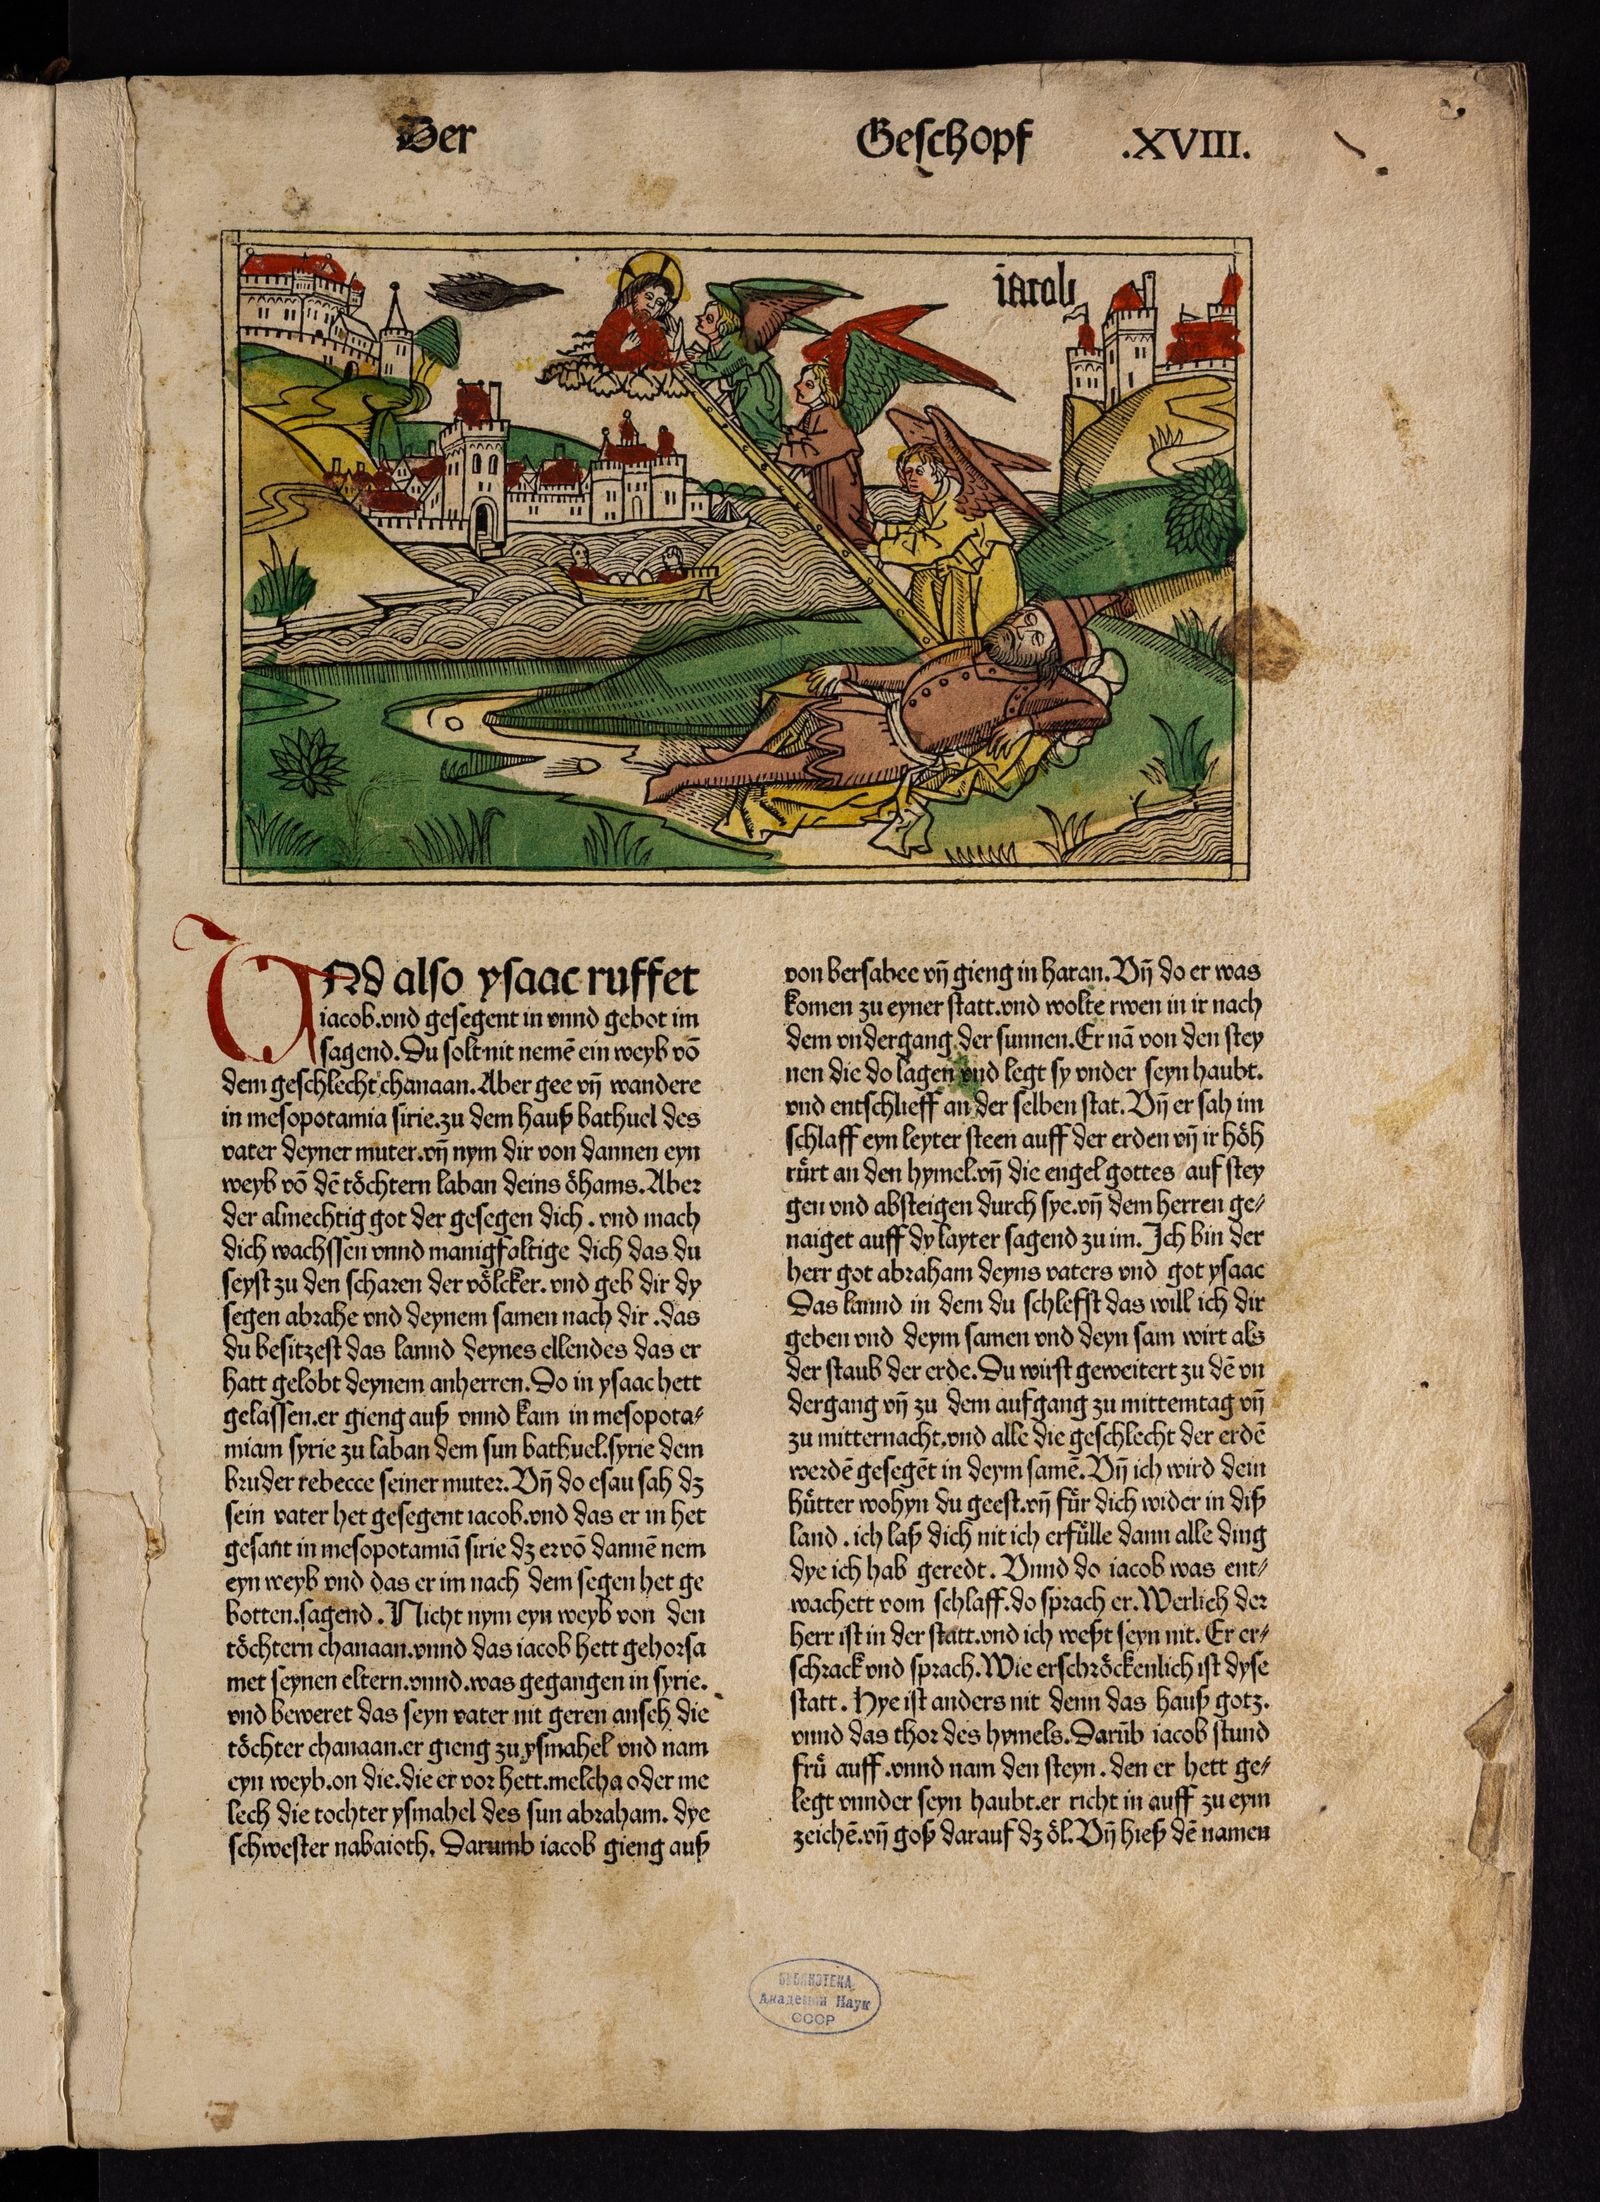 Der Geschopf .XVIII.
iacob
VNd also ysaac ruffet
iacob.vnd gesegent in vnnd gebot im
sagend.Du solt nit nemē ein weyb vō
dem geschlecht chanaan.Aber gee vn̄ wandere
in mesopotamia sirie.zu dem hauß bathuel des
vater deyner muter.vn̄ nym dir von dannen eyn
weyb vō dē töchtern laban deins öhams.Aber
der almechtig got der gesegen dich . vnd mach
dich wachssen vnnd manigfaltige dich das du
seyst zu den scharen der völcker. vnd geb dir dy
segen abrahe vnd deynem samen nach dir .das
du besitzest das lannd deynes ellendes das er
hatt gelobt deynem anherren.Do in ysaac hett
gelassen.er gieng auß vnnd kam in mesopota⸗
miam syrie zu laban dem sun bathuel.syrie dem
bruder rebecce seiner muter.Vn̄ do esau sah dz
sein vater het gesegent iacob.vnd das er in het
gesant in mesopotamiā sirie dz er vō dannē nem
eyn weyb vnd das er im nach dem segen het ge
botten.sagend . Nicht nym eyn weyb von den
töchtern chanaan.vnnd das iacob hett gehorsa
met seynen eltern.vnnd.was gegangen in syrie.
vnd beweret das seyn vater nit geren anseh die
töchter chanaan.er gieng zu ysmahel vnd nam
eyn weyb.on die.die er vor hett.melcha oder me
lech die tochter ysmahel des sun abraham. dye
schwester nabaioth. Darumb iacob gieng auß
von bersabee vn̄ gieng in haran.Vn̄ do er was
komen zu eyner statt.vnd wolte rwen in ir nach
dem vndergang der sunnen.Er nā von den stey
nen die do lagen vnd legt sy vnder seyn haubt.
vnd entschlieff an der selben stat.Vn̄ er sah im
schlaff eyn leyter steen auff der erden vn̄ ir höh
rürt an den hymel.vn̄ die engel gottes auf stey
gen vnd absteigen durch sye.vn̄ dem herren ge⸗
naiget auff dy layter sagend zu im. Ich bin der
herr got abraham deyns vaters vnd got ysaac
Das lannd in dem du schlefst das will ich dir
geben vnd deym samen vnd deyn sam wirt als
der staub der erde.Du wirst geweitert zu dē vn
dergang vn̄ zu dem aufgang zu mittemtag vn̄
zu mitternacht.vnd alle die geschlecht der erdē
werdē gesegēt in deym samē.Vn̄ ich wird dein
hütter wohyn du geest.vn̄ für dich wider in diß
land . ich laß dich nit ich erfülle dann alle ding
dye ich hab geredt . Vnnd do iacob was ent⸗
wachett vom schlaff.do sprach er.Werlich der
herr ist in der statt.vnd ich weßt seyn nit. Er er⸗
schrack vnd sprach.Wie erschröckenlich ist dyse
statt . Hye ist anders nit denn das hauß gotz.
vnnd das thor des hymels.Darūb iacob stund
frü auff.vnnd nam den steyn . den er hett ge⸗
legt vnnder seyn haubt.er richt in auff zu eym
zeichē.vn̄ goß darauf dz öl.Vn̄ hieß dē namen
БИБЛИОТЕКА
Академии Наук
СССР